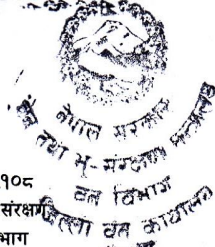 नेपाल सरकार
तथा भू-संरक्षण मन्त्रालय
वन विभाग
जिल्ला वन कार्यालय
१०८
संरक्षण
भाग